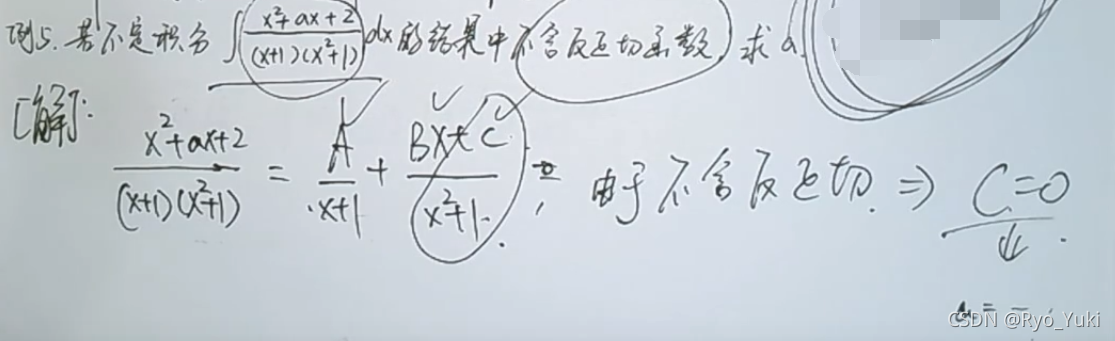 例5.若不定积分∫(x²+ax+2)/((x+1)(x²+1))dx的结果中不含反正切函数,求a.
[解]:
(x²+ax+2)/((x+1)(x²+1)) = A/(x+1) + (Bx+C)/(x²+1), 由于不含反正切. ⇒ C=0
⇓
a=
CSDN @Ryo_Yuki